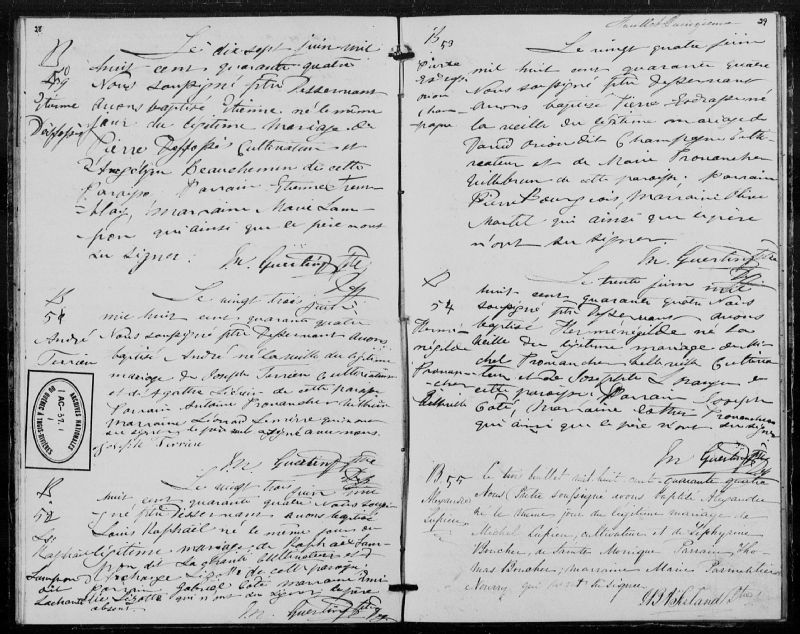 28
B
50
Etienne
Desfossés
Le dix sept juin mil
huit cent quarante quatre
Nous soussigné ptre Desservant
avons baptisé Etienne né le même
jour du légitime mariage de
Pierre Desfossés Cultivateur et
Angelique Beauchemin de cette
Paroisse. Parrain Etienne Trem-
blay, Marraine Marie Lam-
pron qui ainsi que le père n'ont
su signer.
M. Guertin Ptre
B
51
André
Terrien
Le vingt trois juin
mil huit cent quarante quatre
Nous soussigné ptre Desservant avons
baptisé André né la veille du légitime
mariage de Joseph Terrien Cultivateur
et d'Agathe de cette paroisse
Parrain Antoine Provancher
Marraine qui n'ont
su signer le père seul a signé avec nous.
Joseph Terrien
M. Guertin Ptre
ARCHIVES NATIONALES
DU QUEBEC A TROIS-RIVIERES
B
52
Ls
Raphael
Lampron
dit
Lacharité
Le vingt trois juin mil
huit cent quarante quatre Nous soussi-
gné ptre Desservant avons baptisé
Louis Raphaël né le même jour du
légitime mariage de Raphael Lam-
pron dit Lacharité Cultivateur et d'
Archange de cette paroisse
Parrain Gabriel Coté marraine
qui n'ont su signer le père
absent.
M. Guertin Ptre
29
B
53
Pierre
champagne
Le vingt quatre juin
mil huit cent quarante quatre
Nous soussigné ptre Desservant
avons baptisé Pierre né
la veille du légitime mariage de
David dit Champagne Culti-
vateur et de Marie Provancher
Villebrun de cette paroisse, Parrain
Pierre Bourgeois, Marraine Olive
Martel qui ainsi que le père
n'ont su signer
M. Guertin Ptre
B
54
Hermé-
négilde
Provan-
cher
Belleville
Le trente juin mil
huit cent quarante quatre Nous
soussigné ptre Desservant avons
baptisé Herménégilde né la
veille du légitime mariage de Mi-
chel Provancher Belleville Cultiva-
teur et de Josephte de
cette paroisse. Parrain Joseph
Coté, Marraine Esther Provancher
qui ainsi que le père n'ont su signer
M. Guertin Ptre
B 55
Alexandre
Lupien
Le trois Juillet mil huit cent quarante quatre
Nous Prêtre soussigné avons baptisé Alexandre
né le même jour du légitime mariage de
Michel Lupien, cultivateur et de Zéphyrine
Boucher, de Sainte Monique Parrain Tho-
mas Boucher, marraine Marie
Nourry qui n'ont su signer.
Ptre